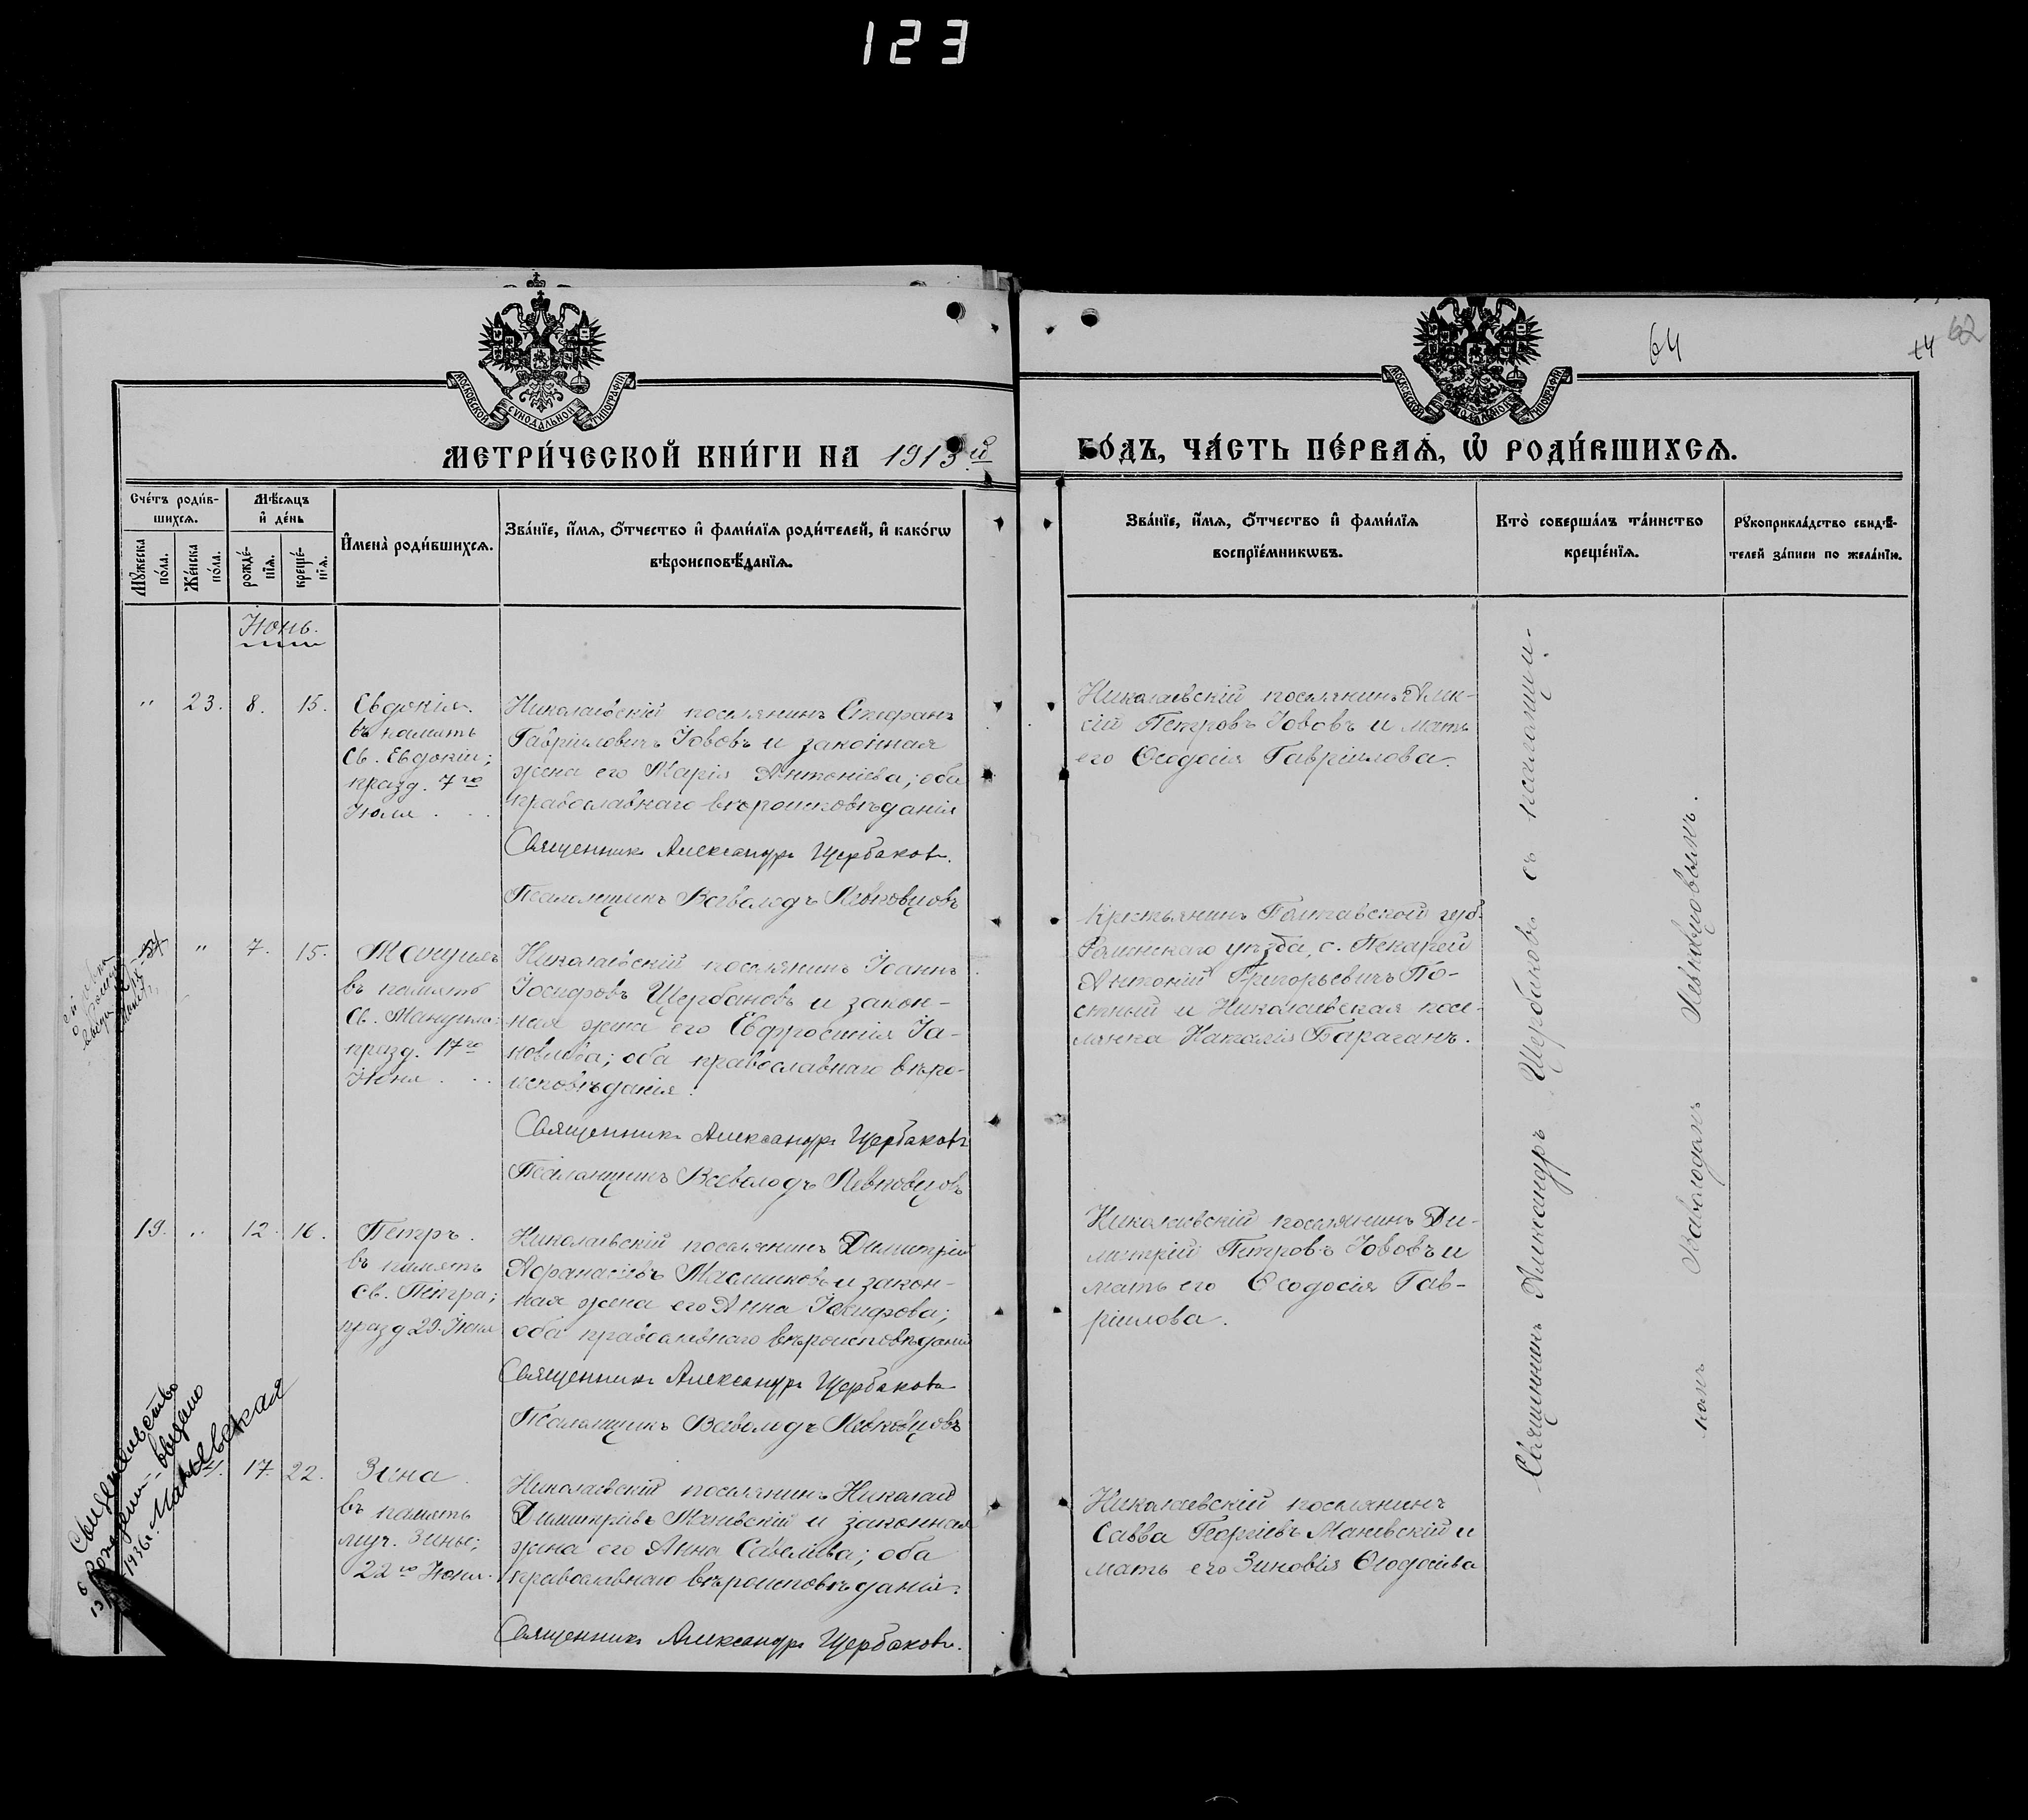 123
МОСКОВСКОЙ СѴНОДАЛЬНОЙ ТИПОГРАФІИ
МОСКОВСКОЙ СѴНОДАЛЬНОЙ ТИПОГРАФІИ
64
62
МЕТРИ́ЧЕСКОЙ КНИ́ГИ НА 1913 й
ГО́ДЪ, ЧА́СТЬ ПЕ́РВАѦ, Ѡ҆ РОДИ́ВШИХСѦ.
Сче́тъ роди́в-
шихсѧ.
Мꙋ́жеска по́ла.
Же́нска по́ла.
Мѣ́сѧцъ
и҆ де́нь
рожде́-
нїѧ.
креще́-
нїѧ.
И҆мена̀ роди́вшихсѧ.
Зва́нїе, и҆́мѧ, ѻ҆́тчество и҆ фами́лїѧ роди́телей, и҆ како́гѡ
вѣроисповѣ́данїѧ.
Зва́нїе, и҆́мѧ, ѻ҆́тчество и҆ фами́лїѧ
воспрїе́мникѡвъ.
Кто̀ соверша́лъ та́инство
креще́нїѧ.
Рꙋкоприкла́дство свидѣ́-
телей за́писи по жела́нїю.
Іюнь.
" 23. 8. 15.
Евдокія.
въ память
Св. Евдокіи;
празд. 7го
Іюля . . .
Николаевскій поселянинъ Стефанъ
Гавріиловичъ Іововъ и законная
жена его Марія Антоніева; оба
православнаго вѣроисповѣданія
Священникъ Александръ Щербаковъ.
Псаломщикъ Всеволодъ Левковцовъ
Николаевскій поселянинъ Алек-
сій Петровъ Іововъ и мать
его Ѳеодосія Гавріилова.
" 7. 15.
Мануилъ
въ память
Св. Мануила
празд. 17го
Іюня . . .
Николаевскій поселянинъ Іоаннъ
Іосифовъ Щербановъ и закон-
ная жена его Евфросинія Іа-
ковлева; оба православнаго вѣро-
исповѣданія.
Священникъ Александръ Щербаковъ
Псаломщикъ Всеволодъ Левковцовъ
Крестьянинъ Полтавской губ.
Роменскаго уѣзда, с. Пекарей
Антоній Григорьевичъ По-
стный и Николаевская посе-
лянка Наталія Бараганъ.
19. " 12. 16.
Петръ.
въ память
Св. Петра;
празд 29. Іюня
Николаевскій поселянинъ Димитрій
Аѳанасіевъ Маслиновъ и закон-
ная жена его Анна Іосифова;
оба православнаго вѣроисповѣданія
Священникъ Александръ Щербаковъ
Псаломщикъ Всеволодъ Левковцовъ
Николаевскій поселянинъ Ди-
митрій Петровъ Іововъ и
мать его Ѳеодосія Гав-
ріилова.
17. 22.
Зина.
въ память
муч. Зины;
22го Іюня.
Николаевскій поселянинъ Николай
Димитріевъ Маневскій и законная
жена его Анна Савеліева; оба
православнаго вѣроисповѣданія.
Священникъ Александръ Щербаковъ.
Николаевскій поселянинъ
Савва Георгіевъ Маневскій и
мать его Зиновія Ѳеодосіева
Священникъ Александръ Щербаковъ съ псаломщи-
комъ Всеволодомъ Левковцовымъ.
Свидетельство
о рождении выдано
1936г.